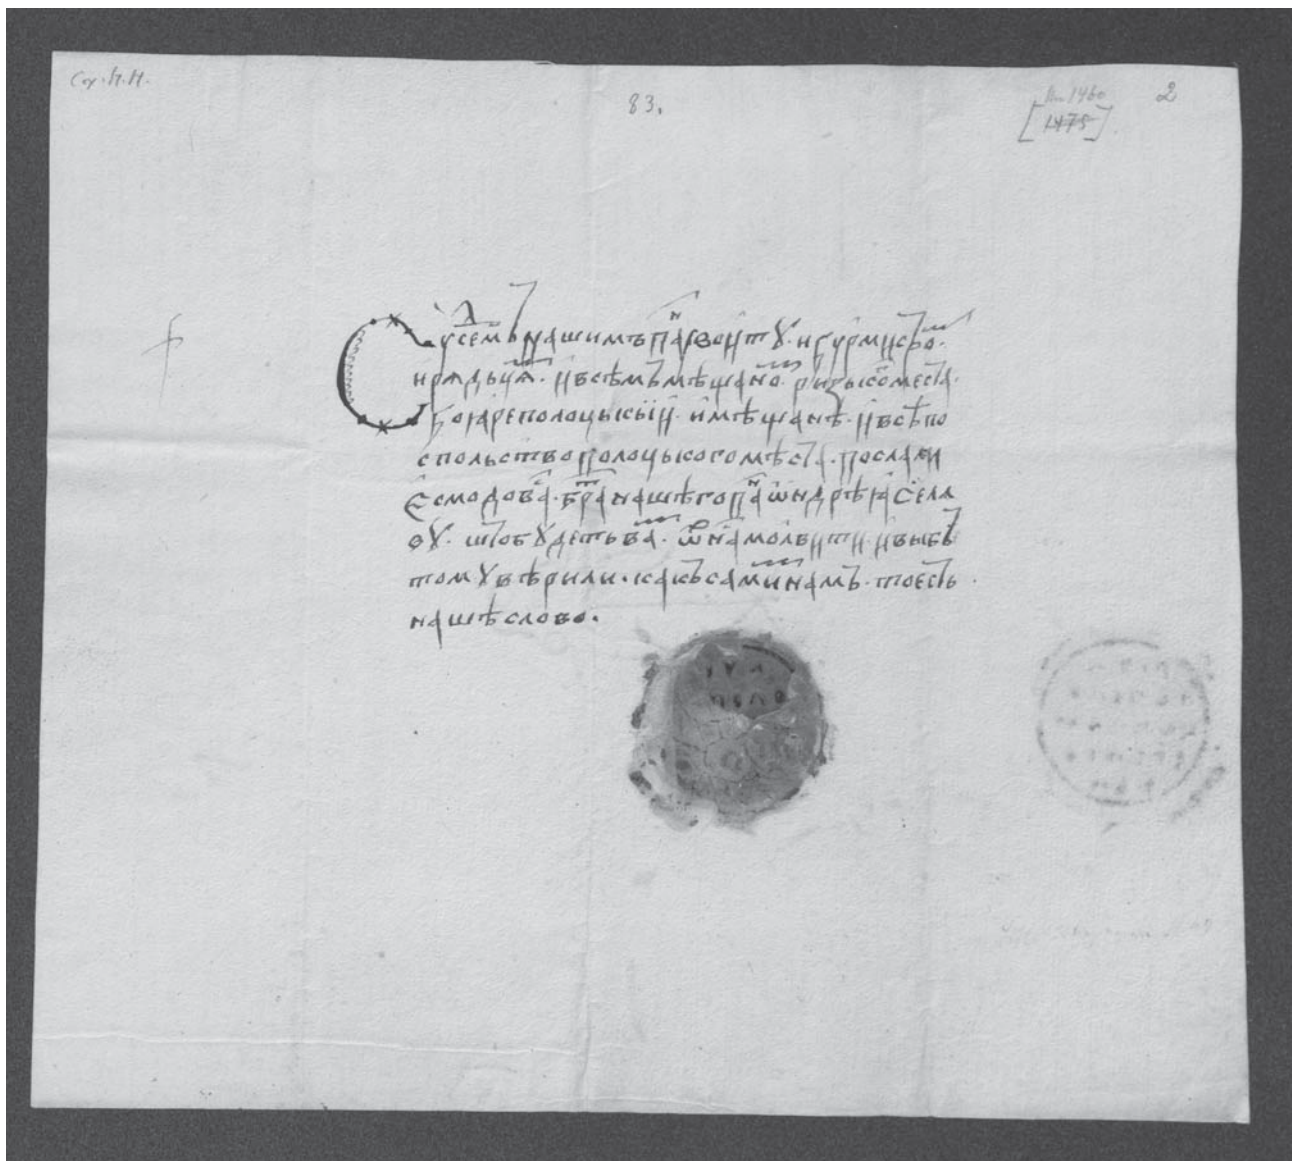 83.
2
[1475]
Сусѣдомъ нашимъ па҃н воитꙋ. и бурмистро.
и рядьця. и всѣмъ мѣщано. ризьког места.
бояре полоцькыи. и мѣщанѣ. и всѣ по
спольство полоцького мѣста. послали
есмо до ва. бра нашего пан ѡндрѣя селя
вꙋ. што бꙋдеть ва. ѿ на молвити. и вы бъ
томꙋ вѣрили. какъ сами намъ. то есть
нашѣ слово.